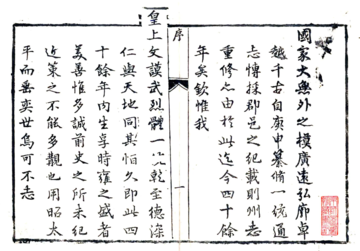 國家大無外之模廣遠弘廓卓
越千古自庚申纂脩一統遍
志慱採郡邑之紀載則州志
重修之由於此迄今四十餘
年矣欽惟我
序
一
皇上文謨武烈體一元乾至德滌
仁與天地同其怕久即此四
十餘年內生享時雍之盛者
美善惟多誠前史之所未紀
近策之不能多觀也用昭太
平而垂奕世烏可不志